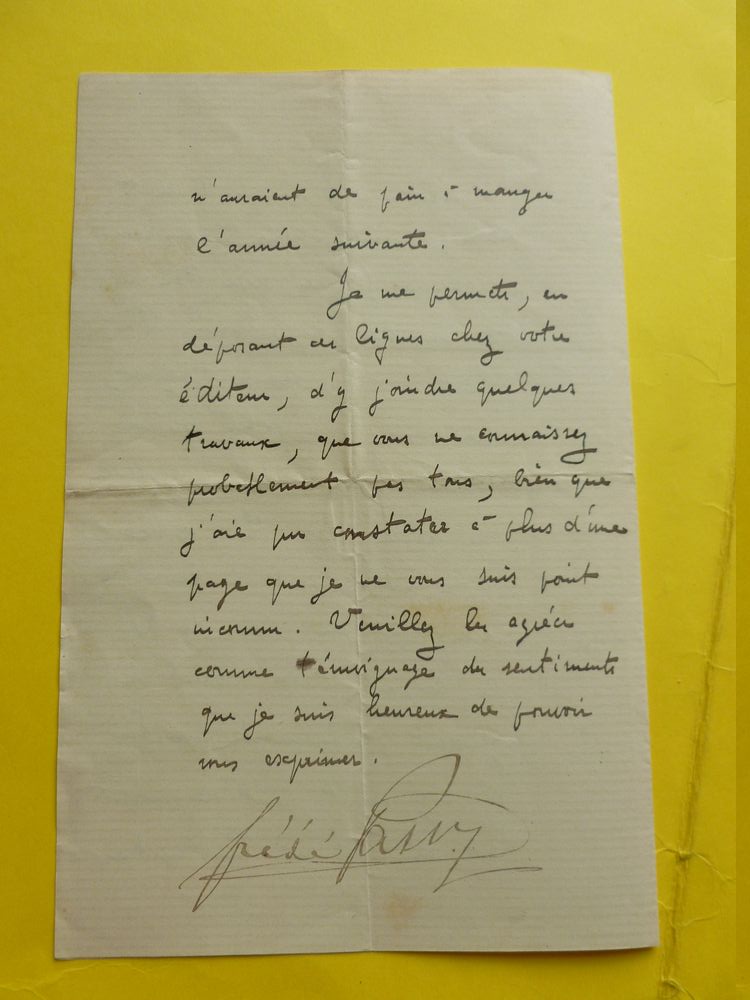 n'auraient de pain à manger
l'année suivante.
Je me permets, en
déposant ces lignes chez votre
éditeur, d'y joindre quelques
travaux, que vous ne connaissez
probablement pas tous, bien que
j'aie pu constater à plus d'une
page que je ne vous suis point
inconnu. Veuillez les agréer
comme témoignage des sentiments
que je suis heureux de pouvoir
vous exprimer.
frédé Passy